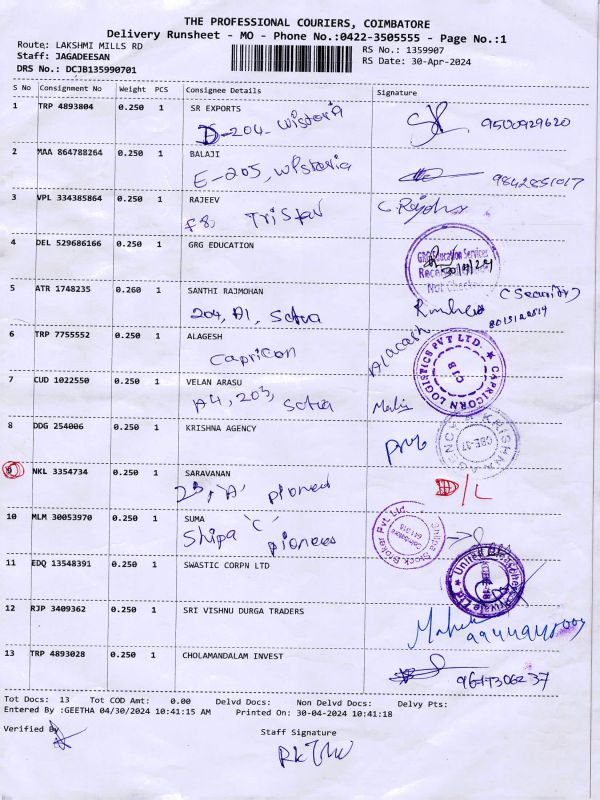 THE PROFESSIONAL COURIERS, COIMBATORE
Delivery Runsheet - MO - Phone No.:0422-3505555 - Page No.:1
Route: LAKSHMI MILLS RD
RS No.: 1359907
Staff: JAGADEESAN
RS Date: 30-Apr-2024
DRS No.: DCJB135990701
S No Consignment No Weight PCS Consignee Details Signature
1 TRP 4893804 0.250 1 SR EXPORTS
D-204, Wistoria 9500929620
2 MAA 864788264 0.250 1 BALAJI
E-205, Wistoria 9842851017
3 VPL 334385864 0.250 1 RAJEEV
F8, TriStar
4 DEL 529686166 0.250 1 GRG EDUCATION
GRG Education Services
30/4/24
5 ATR 1748235 0.260 1 SANTHI RAJMOHAN
204, A1, Setra
(Security)
6 TRP 7755552 0.250 1 ALAGESH
Capricon
CAPRICORN LOGISTICS PVT LTD.
7 CUD 1022550 0.250 1 VELAN ARASU
A4, 203, Setra
8 DDG 254006 0.250 1 KRISHNA AGENCY
KRISHNA AGENCY
CBE-37
9 NKL 3354734 0.250 1 SARAVANAN
23, 'A' pioneer
D/L
10 MLM 30053970 0.250 1 SUMA
Shipa 'C' pioneer
Shilpa Stock Broker Pvt Ltd
Coimbatore
641 018
11 EDQ 13548391 0.250 1 SWASTIC CORPN LTD
Private Ltd
12 RJP 3409362 0.250 1 SRI VISHNU DURGA TRADERS
13 TRP 4893028 0.250 1 CHOLAMANDALAM INVEST
Tot Docs: 13 Tot COD Amt: 0.00 Delvd Docs: Non Delvd Docs: Delvy Pts:
Entered By :GEETHA 04/30/2024 10:41:15 AM Printed On: 30-04-2024 10:41:18
Verified By
Staff Signature